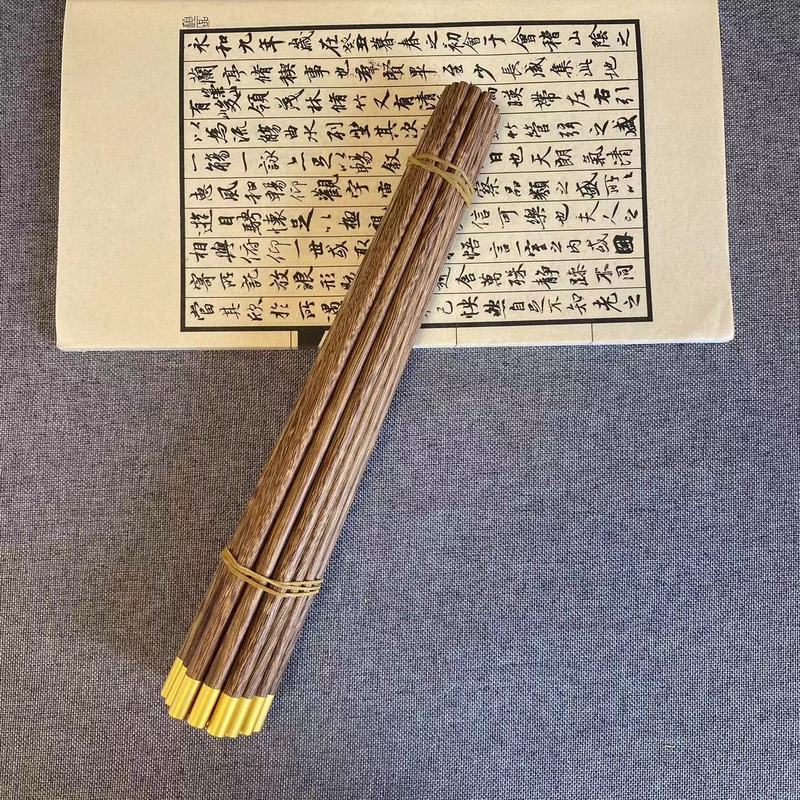 永和九年歲在癸丑暮春之初會于會稽山陰之
蘭亭脩稧事也羣賢畢至少長咸集此地
有崇山峻領茂林脩竹又有清 暎帶左右引
以為流觴曲水列坐其次 竹管弦之盛
一觴一詠亦足以暢敘 日也天朗氣清
惠風和暢仰觀宇宙 察品類之盛所以
遊目騁懷足以極 信可樂也夫人之
相與俯仰一世或取 悟言一室之內或因
寄所託放浪形骸 舍萬殊靜躁不同
當其欣於所遇 己快然自足不知老之